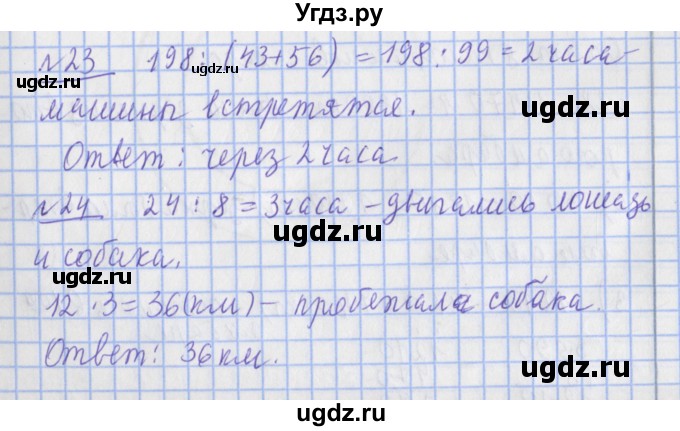 Угдз.ру
№23 198 : (43+56) = 198 : 99 = 2 часа -
ugdz.ru ugdz.ru
машины встретятся.
ugdz.ru ugdz.ru
Ответ: через 2 часа
ugdz.ru
№24 24 : 8 = 3 часа - двигались лошадь
ugdz.ru
и собака.
ugdz.ru
12 · 3 = 36 (км) - пробежала собака.
ugdz.ru ugdz.ru
Ответ: 36 км.
ugdz.ru
ugdz.ru